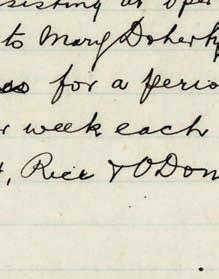 sisting at oper
to Mary Doherty
for a perio
week each
Rice & O'Don